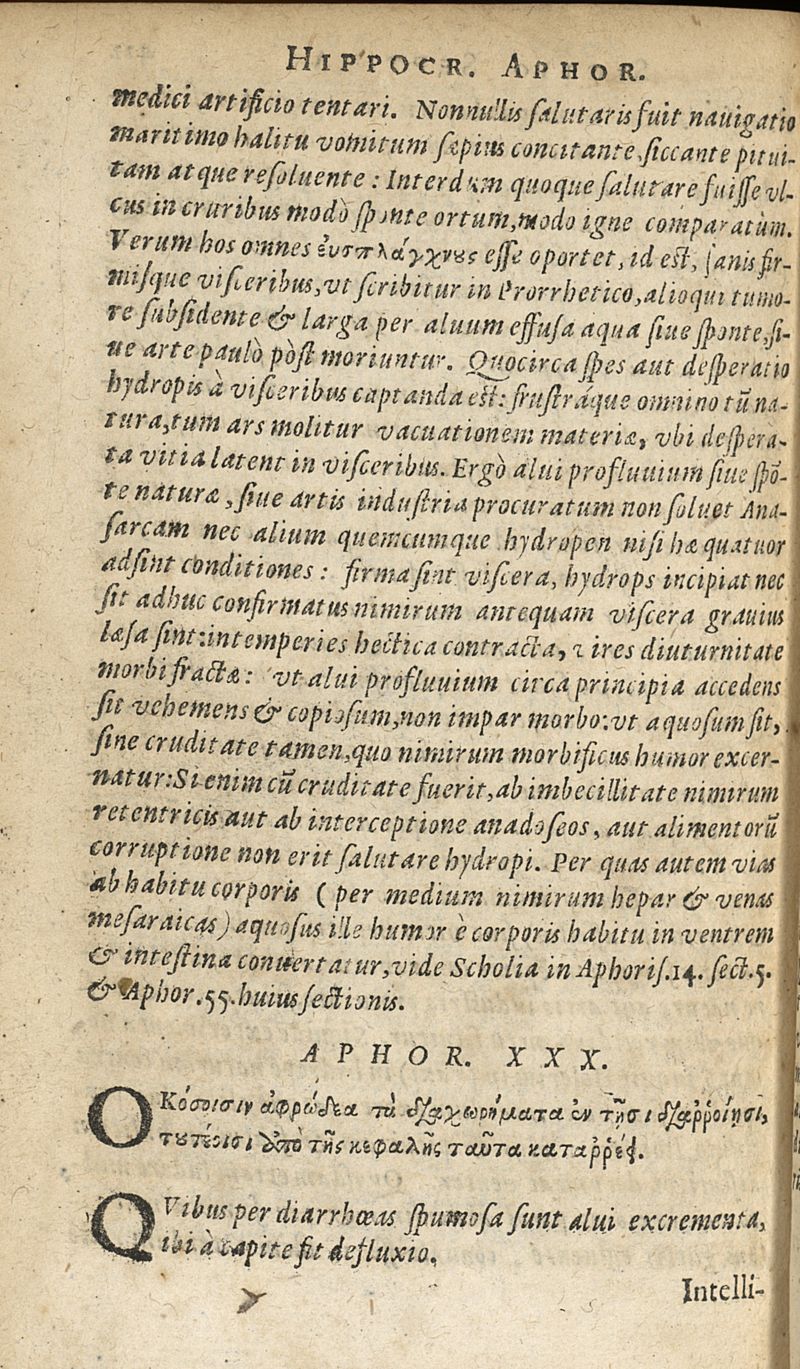 HIPPOCR. APHOR.
medici artificio tentari. Nonnullis ſalutaris fuit nauigatio
maritimo halitu vomitum ſæpius concitante, ſiccante pitui-
tam atque reſoluente: Interdum quoque ſalutare fuiſſe vl-
cus in cruribus modò ſponte ortum, modo igne comparatùm.
Verum hos omnes ἐυσπλάγχνους eſſe oportet, id eſt, ſanis fir-
miſque viſceribus, vt ſcribitur in Prorrhetico, alioqui tumo-
re ſubſidente & larga per aluum effuſa aqua ſiue ſponte, ſi-
ue arte paulò pòſt moriuntur. Quocirca ſpes aut deſperatio
hydropis à viſceribus captanda eſt: fruſtráque omnino tũ na-
tura, tum ars molitur vacuationem materiæ, vbi deſpera-
ta vitia latent in viſceribus. Ergò alui profluuium ſiue ſpõ-
te naturæ, ſiue artis induſtria procuratum non ſoluet Ana-
ſarcam nec alium quemcumque hydropen niſi hæ quatuor
adſint conditiones: firma ſint viſcera, hydrops incipiat nec
ſit adhuc confirmatus nimirum antequam viſcera grauius
læſa ſint: intemperies hectica contracta, vires diuturnitate
morbi fractæ: vt alui profluuium circa principia accedens
ſit vehemens & copioſum, non impar morbo: vt aquoſum ſit,
ſine cruditate tamen, quo nimirum morbificus humor excer-
natur: Si enim cũ cruditate fuerit, ab imbecillitate nimirum
retentricis aut ab interceptione anadoſeos, aut alimentorũ
corruptione non erit ſalutare hydropi. Per quas autem vias
ab habitu corporis ( per medium nimirum hepar & venas
meſaraicas) aquoſus ille humor è corporis habitu in ventrem
& inteſtina conuertatur, vide Scholia in Aphoriſ. 14. ſect. 5.
& Aphor. 55. huius ſectionis.
APHOR. XXX.
ΟΚόσοισιν ἀφρώδεα τὰ διαχωρήματα ἐν τῇσι διαῤῥοίῃσι,
τουτέοισι ἀπὸ τῆς κεφαλῆς ταῦτα καταῤῥέει.
QVibus per diarrhœas ſpumoſa ſunt alui excrementa,
ibi à capite fit defluxio.
Intelli-